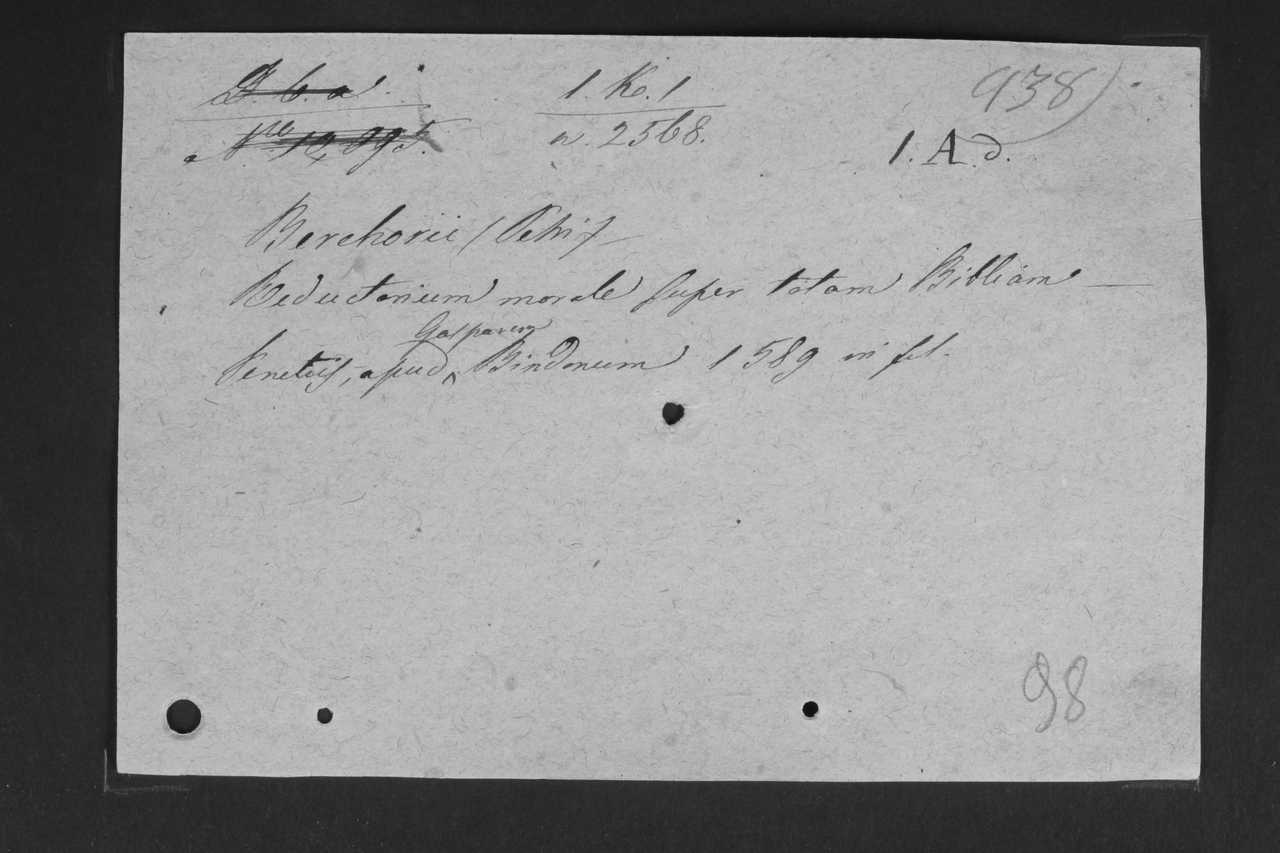 D. b. a. 1. K. 1 938
Nro 12,895. w. 2568. 1. A d.
Berchorii (Petri)
Reductorium morale super totam Bibliam —
Venetiis, apud Gasparem Bindonium 1589 in fol.
98